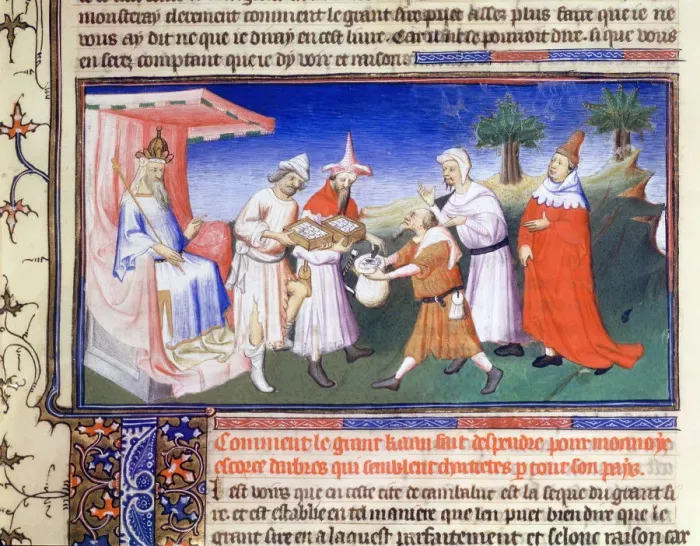 monsteray clerement comment le grant sire puet assez plus faire que ie ne
vous ay dit ne que ie diray en cest liure. Car pourroit dire. si que vous
en serez comptant que ie dy voir et raison.
Comment le grant kaan fait despendre pour monnoye
escorce darbres qui semblent chartretes p tout son pays.
Il est voirs que en ceste cite de cambaluc est la seque du grant si
re. et est establie en tel maniere que len puet bien dire que le
grant sire en a laquest parfaitement et selonc raison car